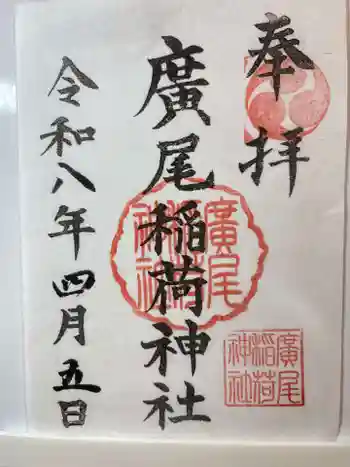 奉拝
廣尾稲荷神社
廣尾
稲荷
神社
廣尾
稲荷
神社
令和八年四月五日